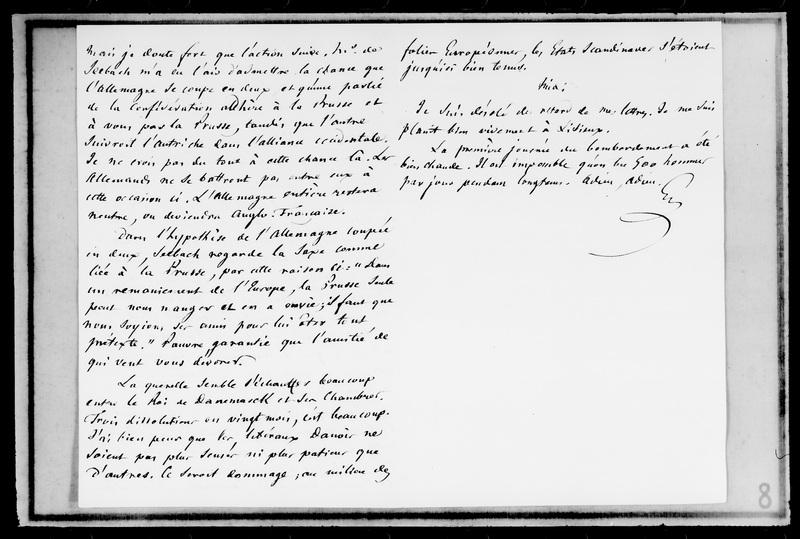 Mais je doute fort que l'action suive. Mr. de
Seebach m'a eu l'air d'admettre la chance que
l'Allemagne se coupe en deux et qu'une partie
de la confédération adhère à la Prusse et
à vous par la Prusse, tandis que l'autre
suivroit l'Autriche dans l'alliance occidentale.
Je ne crois pas du tout à cette chance là. Les
Allemands ne se battront pas entre eux à
cette occasion ci. L'Allemagne entière restera
neutre, ou deviendra Anglo-Française.
Dans l'hypothèse de l'Allemagne coupée
en deux, Seebach regarde la Saxe comme
liée à la Prusse, par cette raison ci: "Dans
un remaniement de l'Europe, la Prusse seule
peut nous manger et en a envie; il faut que
nous soyions ses amis pour lui ôter tout
prétexte." Pauvre garantie que l'amitié de
qui veut vous dévorer.
La querelle semble s'échauffer beaucoup
entre le Roi de Danemarck et ses Chambres.
Trois dissolutions en vingt mois, c'est beaucoup.
J'ai bien peur que les libéraux Danois ne
soient pas plus sensés ni plus patiens que
d'autres. Ce seroit dommage; au milieu des
folies Européennes, les Etats Scandinaves s'étoient
jusqu'ici bien tenus.
Midi
Je suis désolé du retard de mes lettres. Je me suis
plaint bien vivement à Lisieux.
La première journée du bombardement a été
bien chaude. Il est impossible qu'on tue 500 hommes
par jour pendant longtems. Adieu, adieu.
8